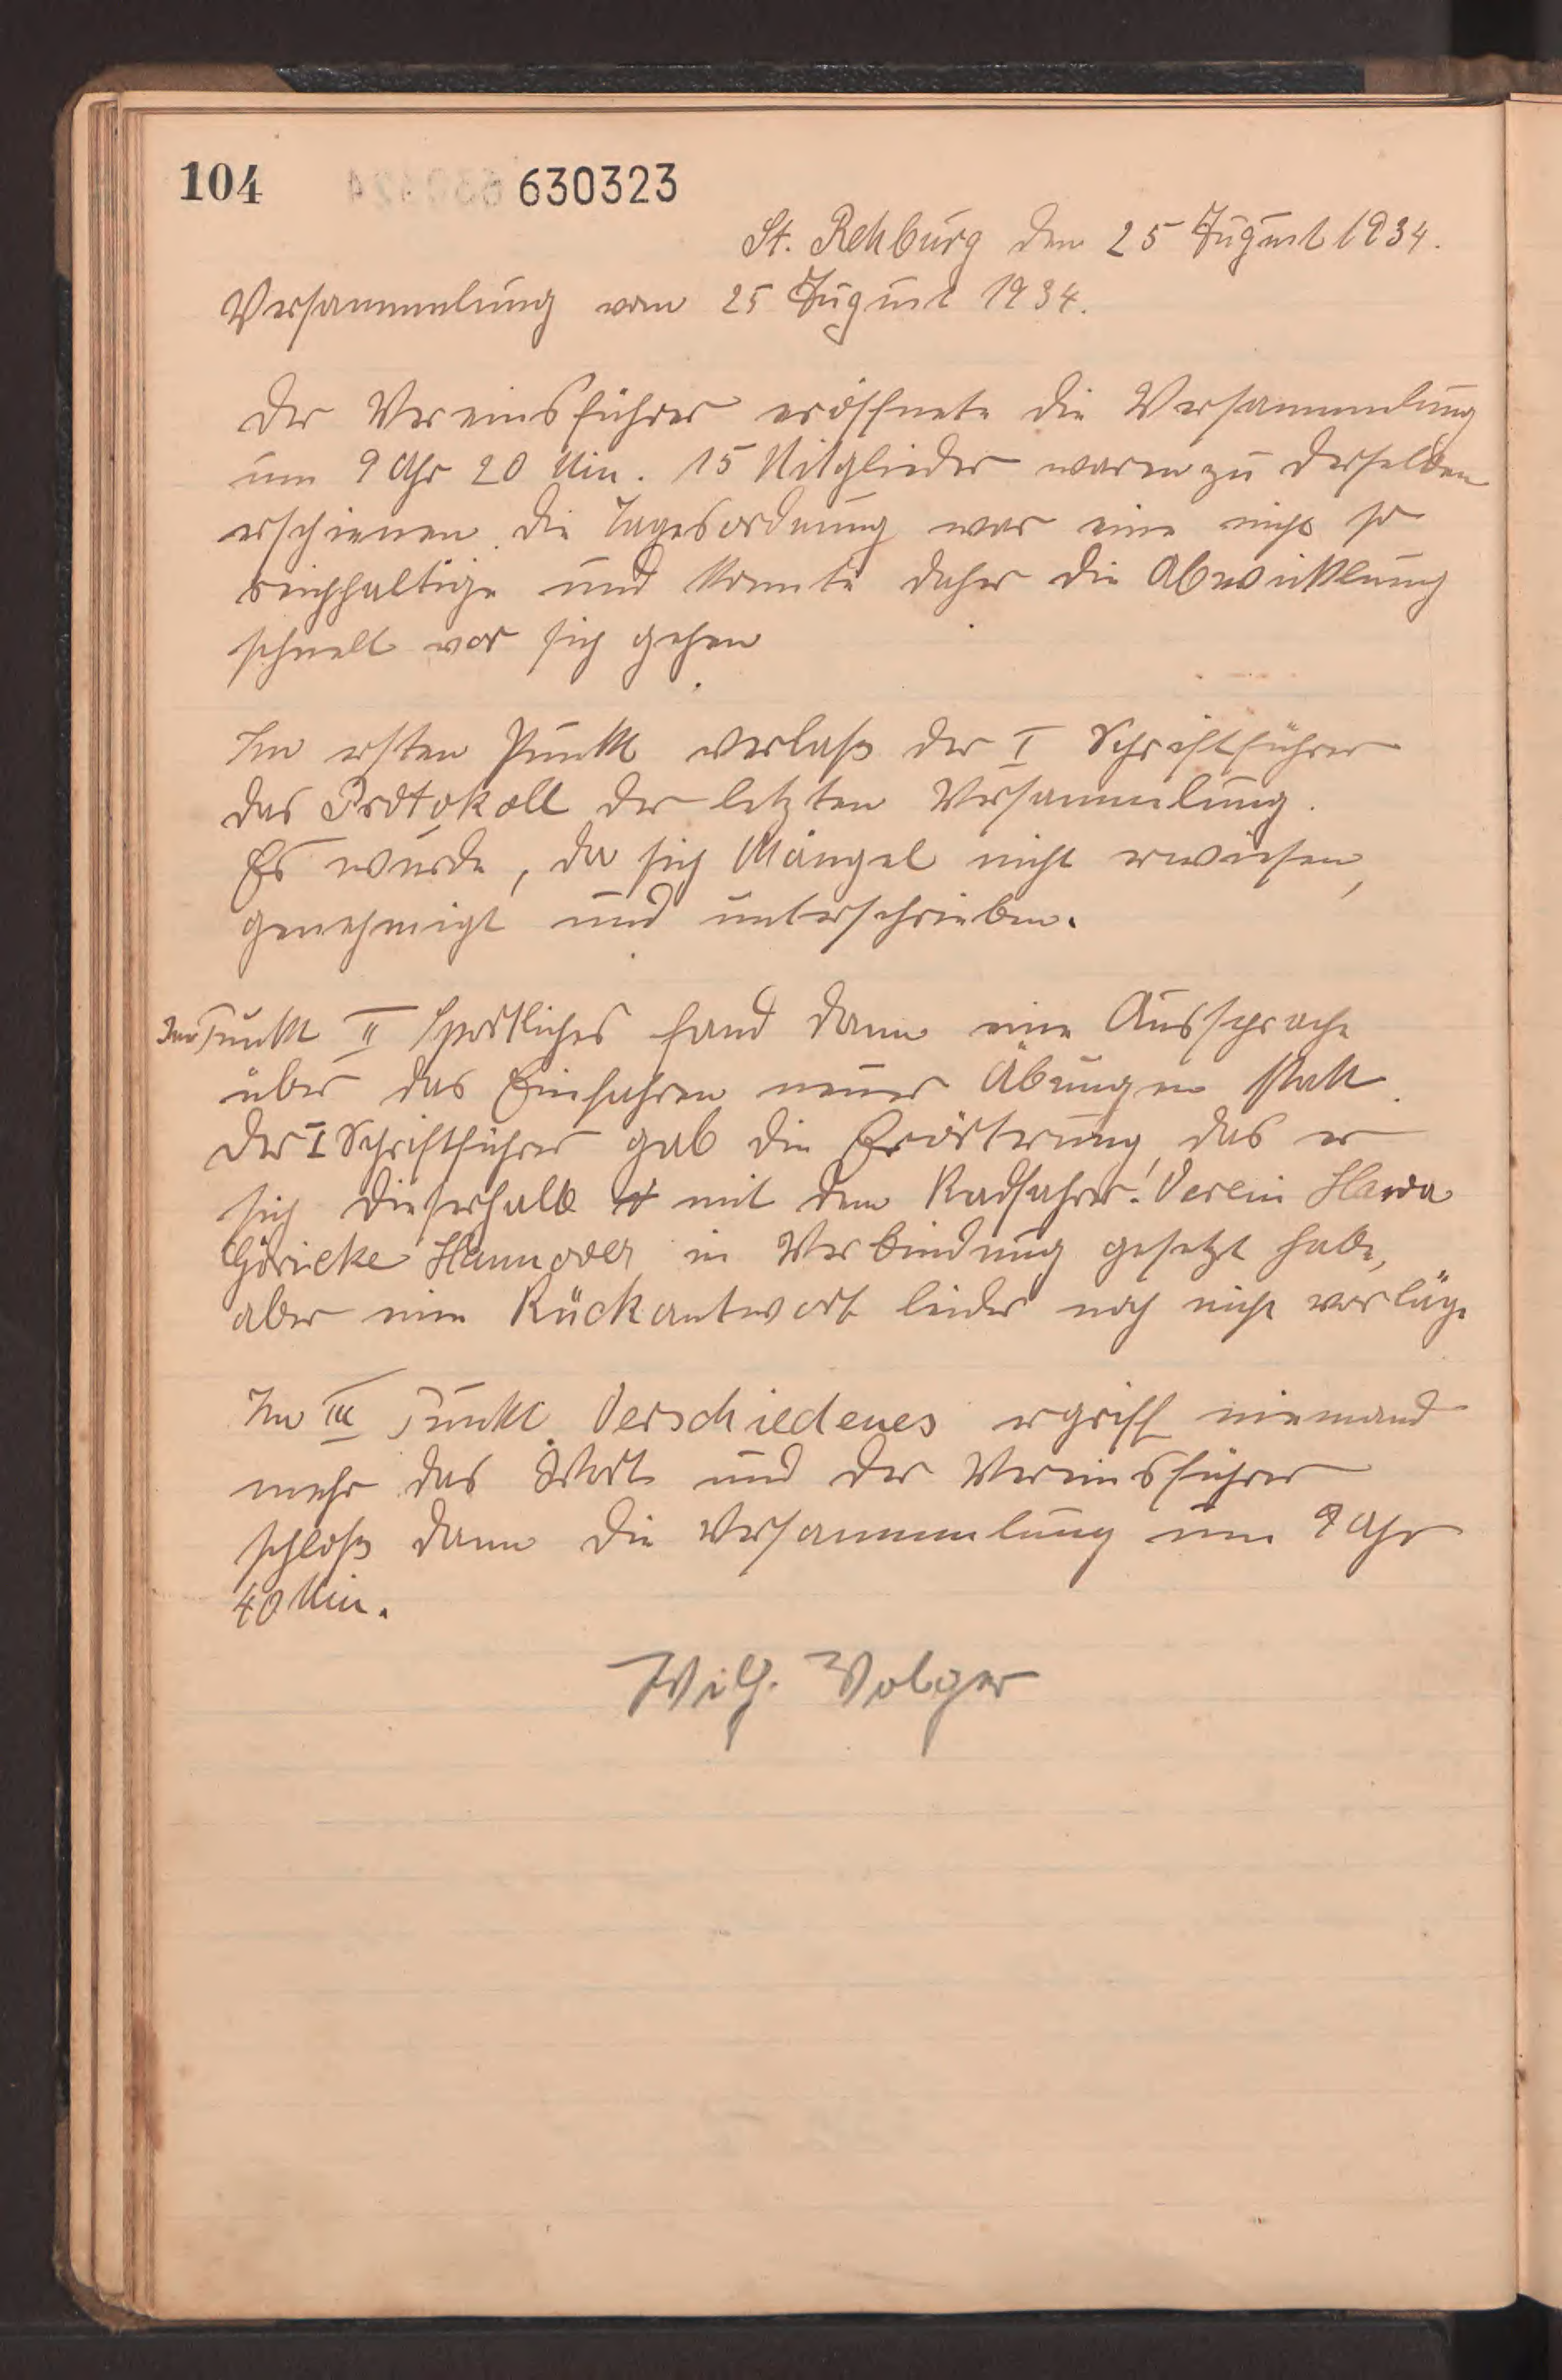 104 630323
St. Rehburg den 25 August 1934.
Versammlung vom 25 August 1934.
Der Vereinsführer eröffnete die Versammlung
um 9 Uhr 20 Min. 15 Mitglieder waren zu derselben
erschienen. Die Tagesordnung war eine nicht so
reichhaltige und konnte daher die Abwicklung
schnell vor sich gehen.
Im ersten Punkt verlaß der I Schriftführer
das Protokoll der letzten Versammlung.
Es wurde, da sich Mängel nicht erwiesen,
genehmigt und unterschrieben.
Im Punkt II Sportliches fand dann eine Aussprache
über das Einfahren neuer Übungen statt.
Der I Schriftführer gab die Erörterung, das er
sich dieserhalb mit dem Radfahrer! Verein Hawa
Göricke Hannover in Verbindung gesetzt habe,
aber eine Rückantwort leider noch nicht vorläge
Im III Punkt Verschiedenes ergriff niemand
mehr das Wort und der Vereinsführer
schloß dann die Versammlung um 9 Uhr
40 Min.
Wilh. Volger